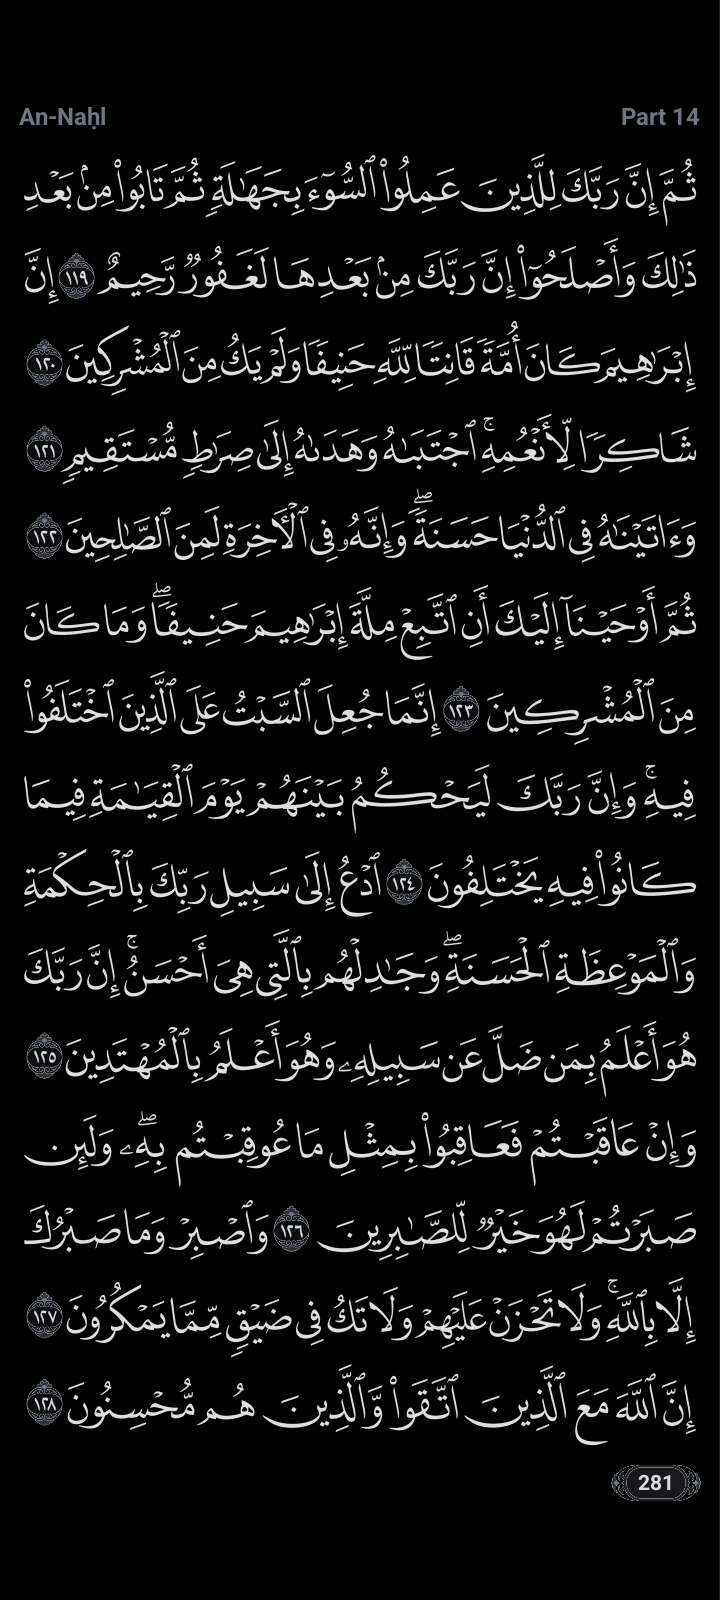 An-Naḥl Part 14
ثُمَّ إِنَّ رَبَّكَ لِلَّذِينَ عَمِلُوا۟ ٱلسُّوٓءَ بِجَهَٰلَةٍۢ ثُمَّ تَابُوا۟ مِنۢ بَعْدِ
ذَٰلِكَ وَأَصْلَحُوٓا۟ إِنَّ رَبَّكَ مِنۢ بَعْدِهَا لَغَفُورٌۭ رَّحِيمٌ ١١٩ إِنَّ
إِبْرَٰهِيمَ كَانَ أُمَّةًۭ قَانِتًۭا لِّلَّهِ حَنِيفًۭا وَلَمْ يَكُ مِنَ ٱلْمُشْرِكِينَ ١٢٠
شَاكِرًۭا لِّأَنْعُمِهِ ۚ ٱجْتَبَىٰهُ وَهَدَىٰهُ إِلَىٰ صِرَٰطٍۢ مُّسْتَقِيمٍۢ ١٢١
وَءَاتَيْنَٰهُ فِى ٱلدُّنْيَا حَسَنَةًۭ ۖ وَإِنَّهُۥ فِى ٱلْءَاخِرَةِ لَمِنَ ٱلصَّٰلِحِينَ ١٢٢
ثُمَّ أَوْحَيْنَآ إِلَيْكَ أَنِ ٱتَّبِعْ مِلَّةَ إِبْرَٰهِيمَ حَنِيفًۭا ۖ وَمَا كَانَ
مِنَ ٱلْمُشْرِكِينَ ١٢٣ إِنَّمَا جُعِلَ ٱلسَّبْتُ عَلَى ٱلَّذِينَ ٱخْتَلَفُوا۟
فِيهِ ۚ وَإِنَّ رَبَّكَ لَيَحْكُمُ بَيْنَهُمْ يَوْمَ ٱلْقِيَٰمَةِ فِيمَا
كَانُوا۟ فِيهِ يَخْتَلِفُونَ ١٢٤ ٱدْعُ إِلَىٰ سَبِيلِ رَبِّكَ بِٱلْحِكْمَةِ
وَٱلْمَوْعِظَةِ ٱلْحَسَنَةِ ۖ وَجَٰدِلْهُم بِٱلَّتِى هِىَ أَحْسَنُ ۚ إِنَّ رَبَّكَ
هُوَ أَعْلَمُ بِمَن ضَلَّ عَن سَبِيلِهِۦ وَهُوَ أَعْلَمُ بِٱلْمُهْتَدِينَ ١٢٥
وَإِنْ عَاقَبْتُمْ فَعَاقِبُوا۟ بِمِثْلِ مَا عُوقِبْتُم بِهِۦ ۖ وَلَئِن
صَبَرْتُمْ لَهُوَ خَيْرٌۭ لِّلصَّٰبِرِينَ ١٢٦ وَٱصْبِرْ وَمَا صَبْرُكَ
إِلَّا بِٱللَّهِ ۚ وَلَا تَحْزَنْ عَلَيْهِمْ وَلَا تَكُ فِى ضَيْقٍۢ مِّمَّا يَمْكُرُونَ ١٢٧
إِنَّ ٱللَّهَ مَعَ ٱلَّذِينَ ٱتَّقَوا۟ وَّٱلَّذِينَ هُم مُّحْسِنُونَ ١٢٨
281